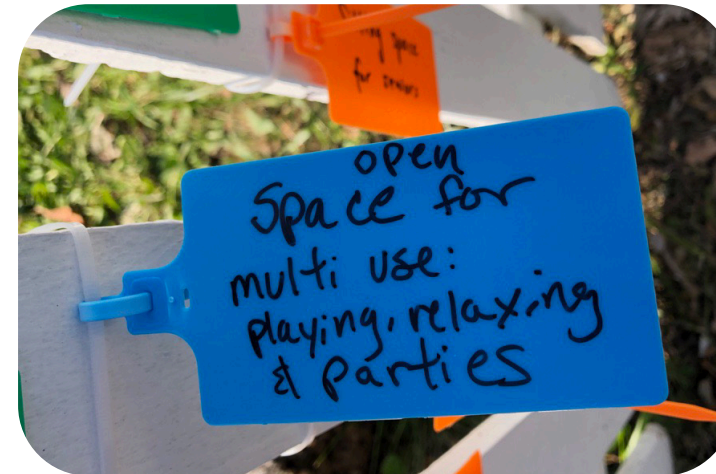 space
for seniors
open
Space for
multi use:
playing, relaxing
& parties